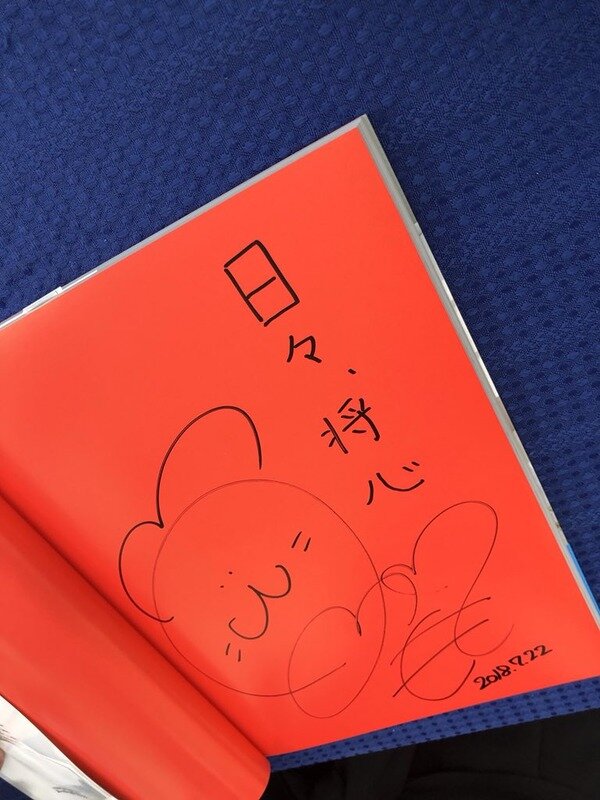 日々、将心
2018.7.22